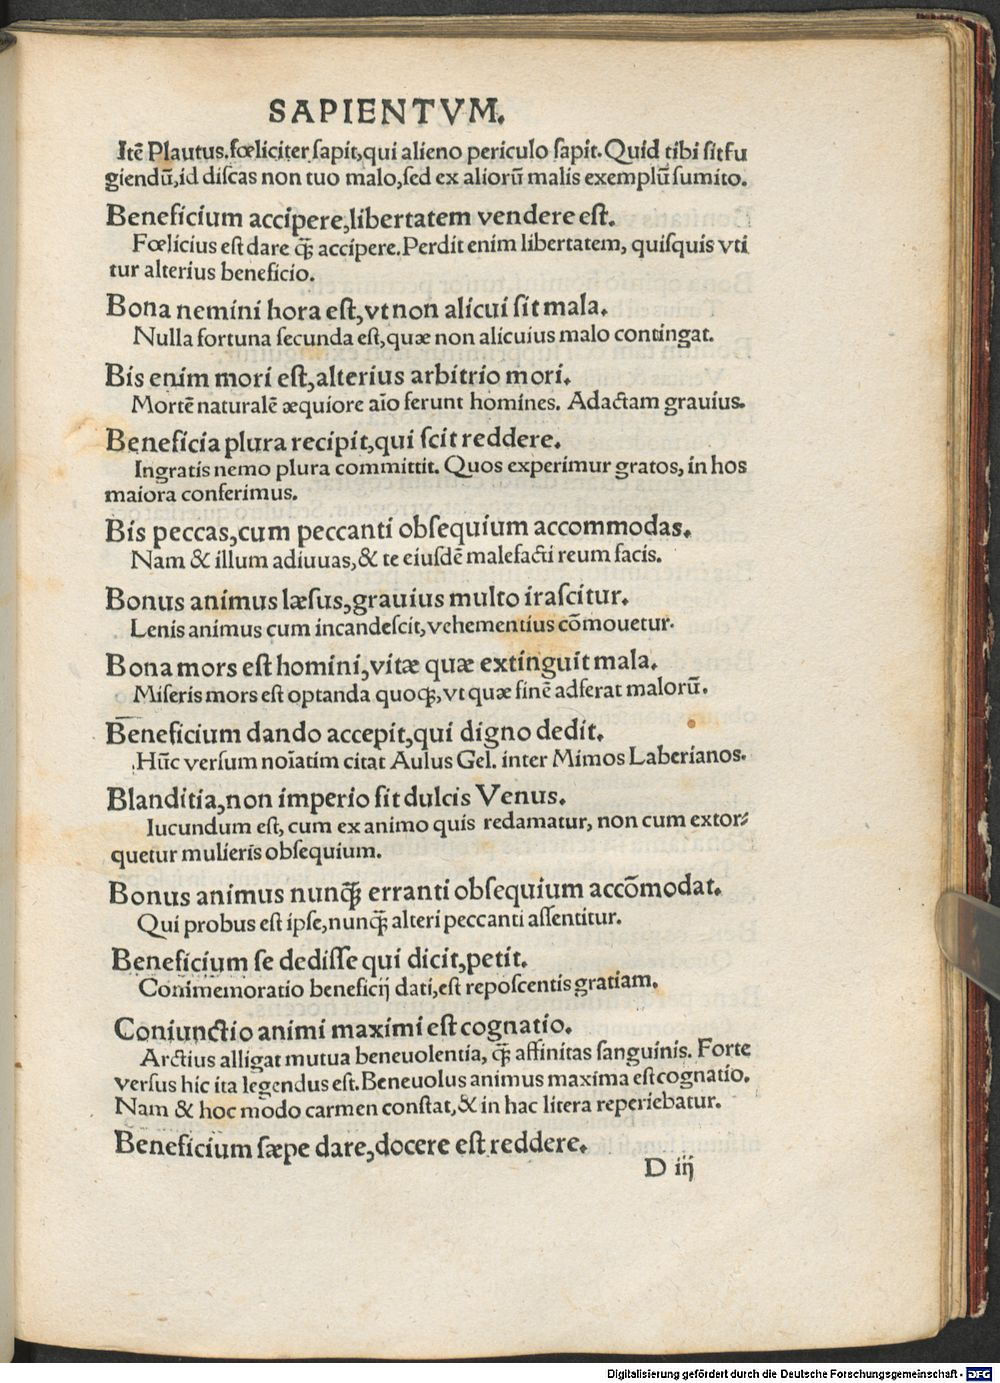 SAPIENTVM.
Itē Plautus.fœliciter ſapit,qui alieno periculo ſapit.Quid tibi ſit fu
giendū,id diſcas non tuo malo,ſed ex aliorū malis exemplū ſumito.
Beneficium accipere,libertatem vendere eſt.
Fœlicius eſt dare q̄ꝫ accipere.Perdit enim libertatem, quiſquis vti
tur alterius beneficio.
Bona nemini hora eſt,vt non alicui ſit mala.
Nulla fortuna ſecunda eſt,quæ non alicuius malo contingat.
Bis enim mori eſt,alterius arbitrio mori.
Mortē naturalē æquiore aīo ferunt homines. Adactam grauius.
Beneficia plura recipit,qui ſcit reddere.
Ingratis nemo plura committit. Quos experimur gratos, in hos
maiora conferimus.
Bis peccas,cum peccanti obſequium accommodas.
Nam & illum adiuuas,& te eiuſdē malefacti reum facis.
Bonus animus læſus,grauius multo iraſcitur.
Lenis animus cum incandeſcit,vehementius cōmouetur.
Bona mors eſt homini,vitæ quæ extinguit mala.
Miſeris mors eſt optanda quoqꝫ,vt quæ finē adferat malorū.
Beneficium dando accepit,qui digno dedit.
Hūc verſum noīatim citat Aulus Gel. inter Mimos Laberianos.
Blanditia,non imperio fit dulcis Venus.
Iucundum eſt, cum ex animo quis redamatur, non cum extor⸗
quetur mulieris obſequium.
Bonus animus nunq̄ꝫ erranti obſequium accōmodat.
Qui probus eſt ipſe,nunq̄ꝫ alteri peccanti aſſentitur.
Beneficium ſe dediſſe qui dicit,petit.
Commemoratio beneficij dati,eſt repoſcentis gratiam.
Coniunctio animi maximi eſt cognatio.
Arctius alligat mutua beneuolentia, q̄ꝫ affinitas ſanguinis. Forte
verſus hic ita legendus eſt.Beneuolus animus maxima eſt cognatio.
Nam & hoc modo carmen conſtat,& in hac litera reperiebatur.
Beneficium ſæpe dare,docere eſt reddere.
D iij
Digitalisierung gefördert durch die Deutsche Forschungsgemeinschaft - DFG